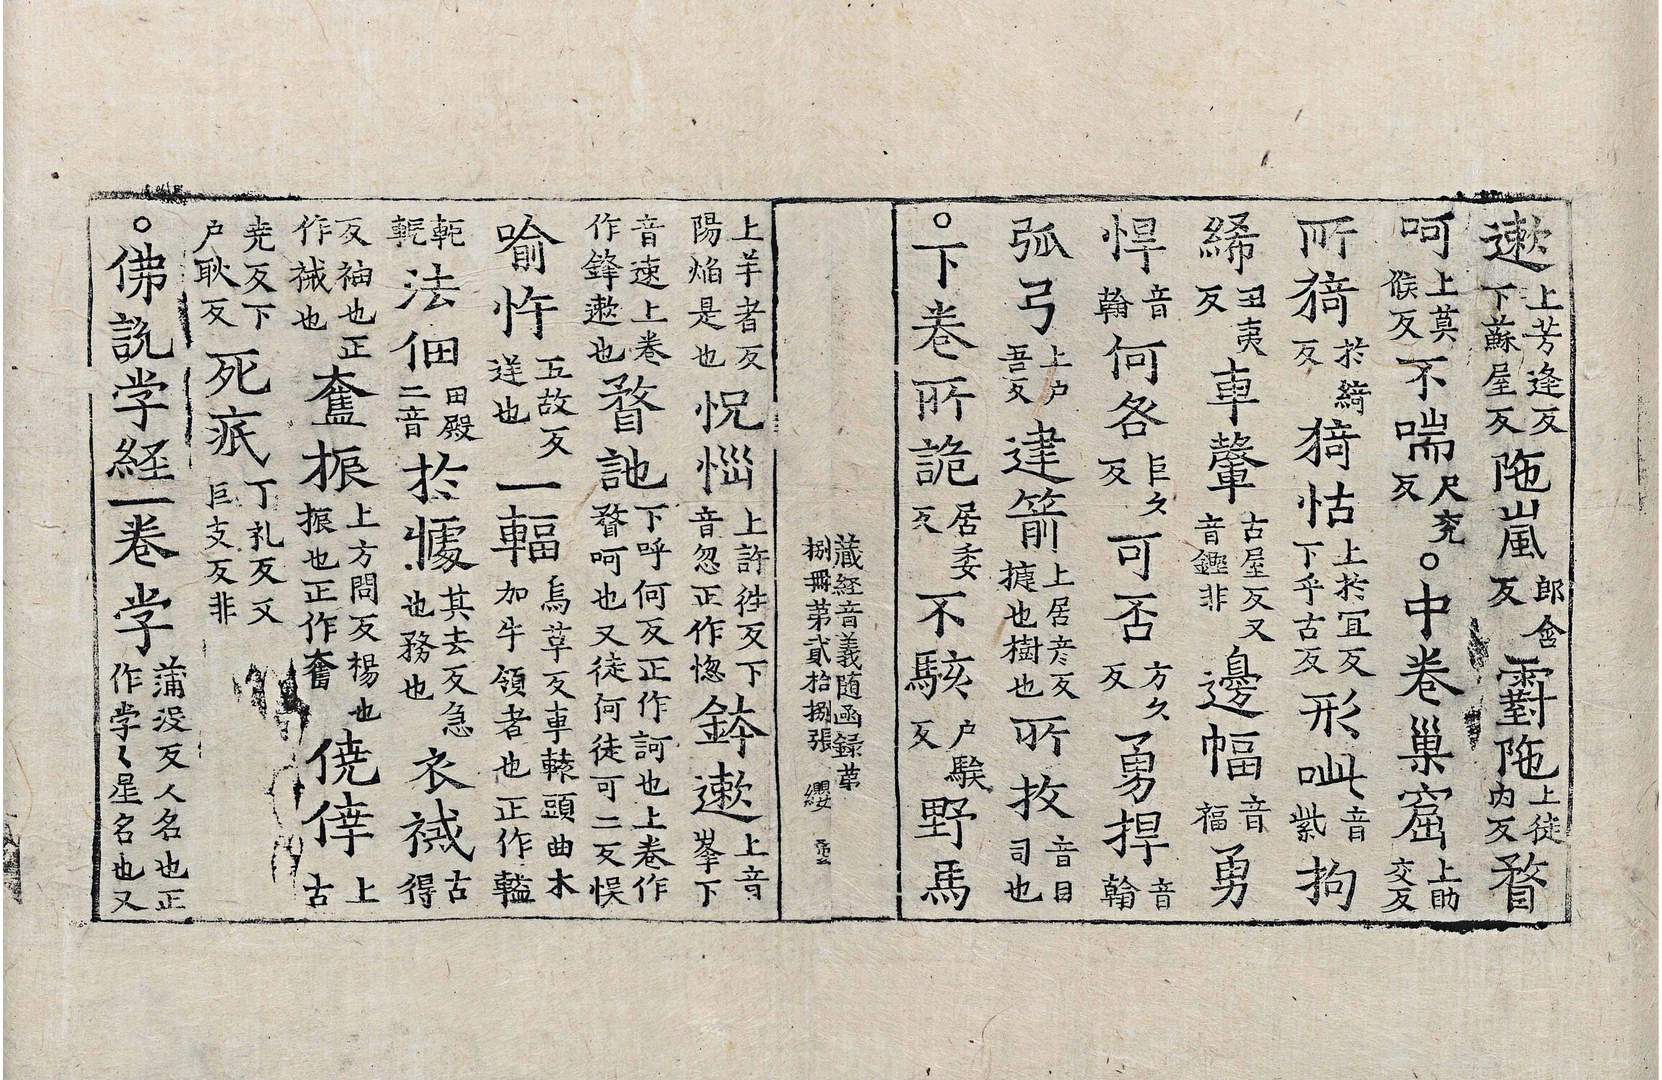 遬上芳逢反下蘇屋反陁嵐郎含反霌陁上徒内反瞀
呵上莫候反不喘尺兖反○中卷巢窟上助交反
所猗於綺反猗怙上於宜反下乎古反形呲音紫拘
絺丑夷反車轚古屋反又音鏗非邊幅音福勇
悍音翰何咎巨久反可否方久反勇捍音翰
弧弓上户吾反建箭上居彦反揵也樹也所敀音目司也
○下卷所詭居委反不駭户騃反野馬
藏經音義随函録苐
捌冊第貳拾捌張 纓
上羊者反陽焰是也怳惱上許往反下音忽正作惚䤵遬上音峯下
音速上卷作鋒遬也瞀訑下呼何反正作訶也上卷作瞀呵也又徒何徒可二反悮
喻忤五故反逆也一輻烏革反車轅頭曲木加牛領者也正作軶
軛軏法佃田殿二音扵懅其去反急也務也衣裓古得
反袖也正作裓也奮振上方問反楊也振也正作奮僥倖上古
尭反下户耿反死疷丁礼反又巨支反非
○佛説孛経一卷孛蒲没反人名也正作孛〻星名也又